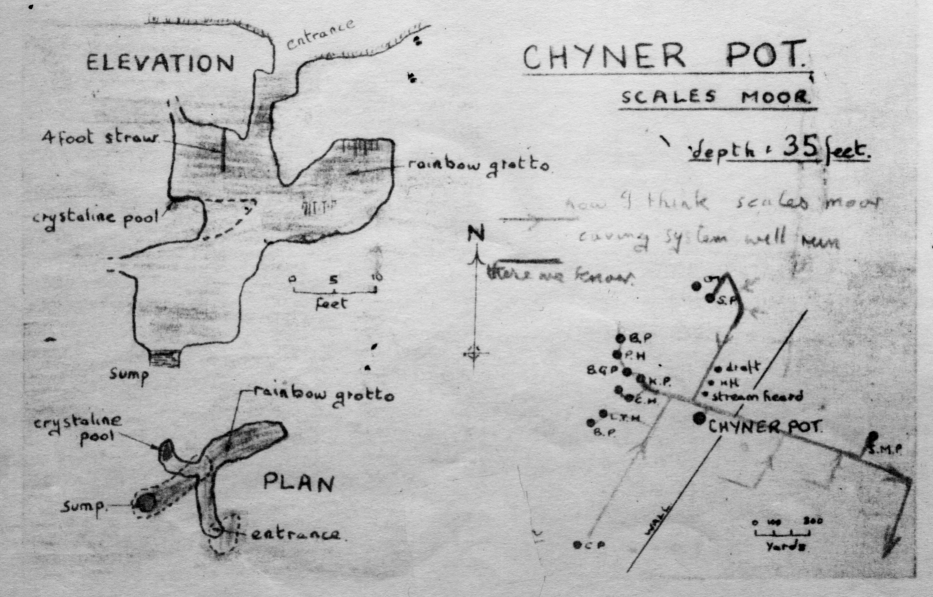 ELEVATION
entrance
4 foot straw
rainbow grotto
crystaline pool
0 5 10
feet
Sump
CHYNER POT.
SCALES MOOR.
depth : 35 feet.
how I think scales moor
caving system will run
there we know.
N
S.P.
B.P
P.H
B.G.P
K.P.
E.H
L.T.H
B.P.
draft
stream heard
CHYNER POT.
S.M.P.
C.P
WALL
0 100 200
Yards
rainbow grotto
crystaline
pool
PLAN
Sump.
entrance.